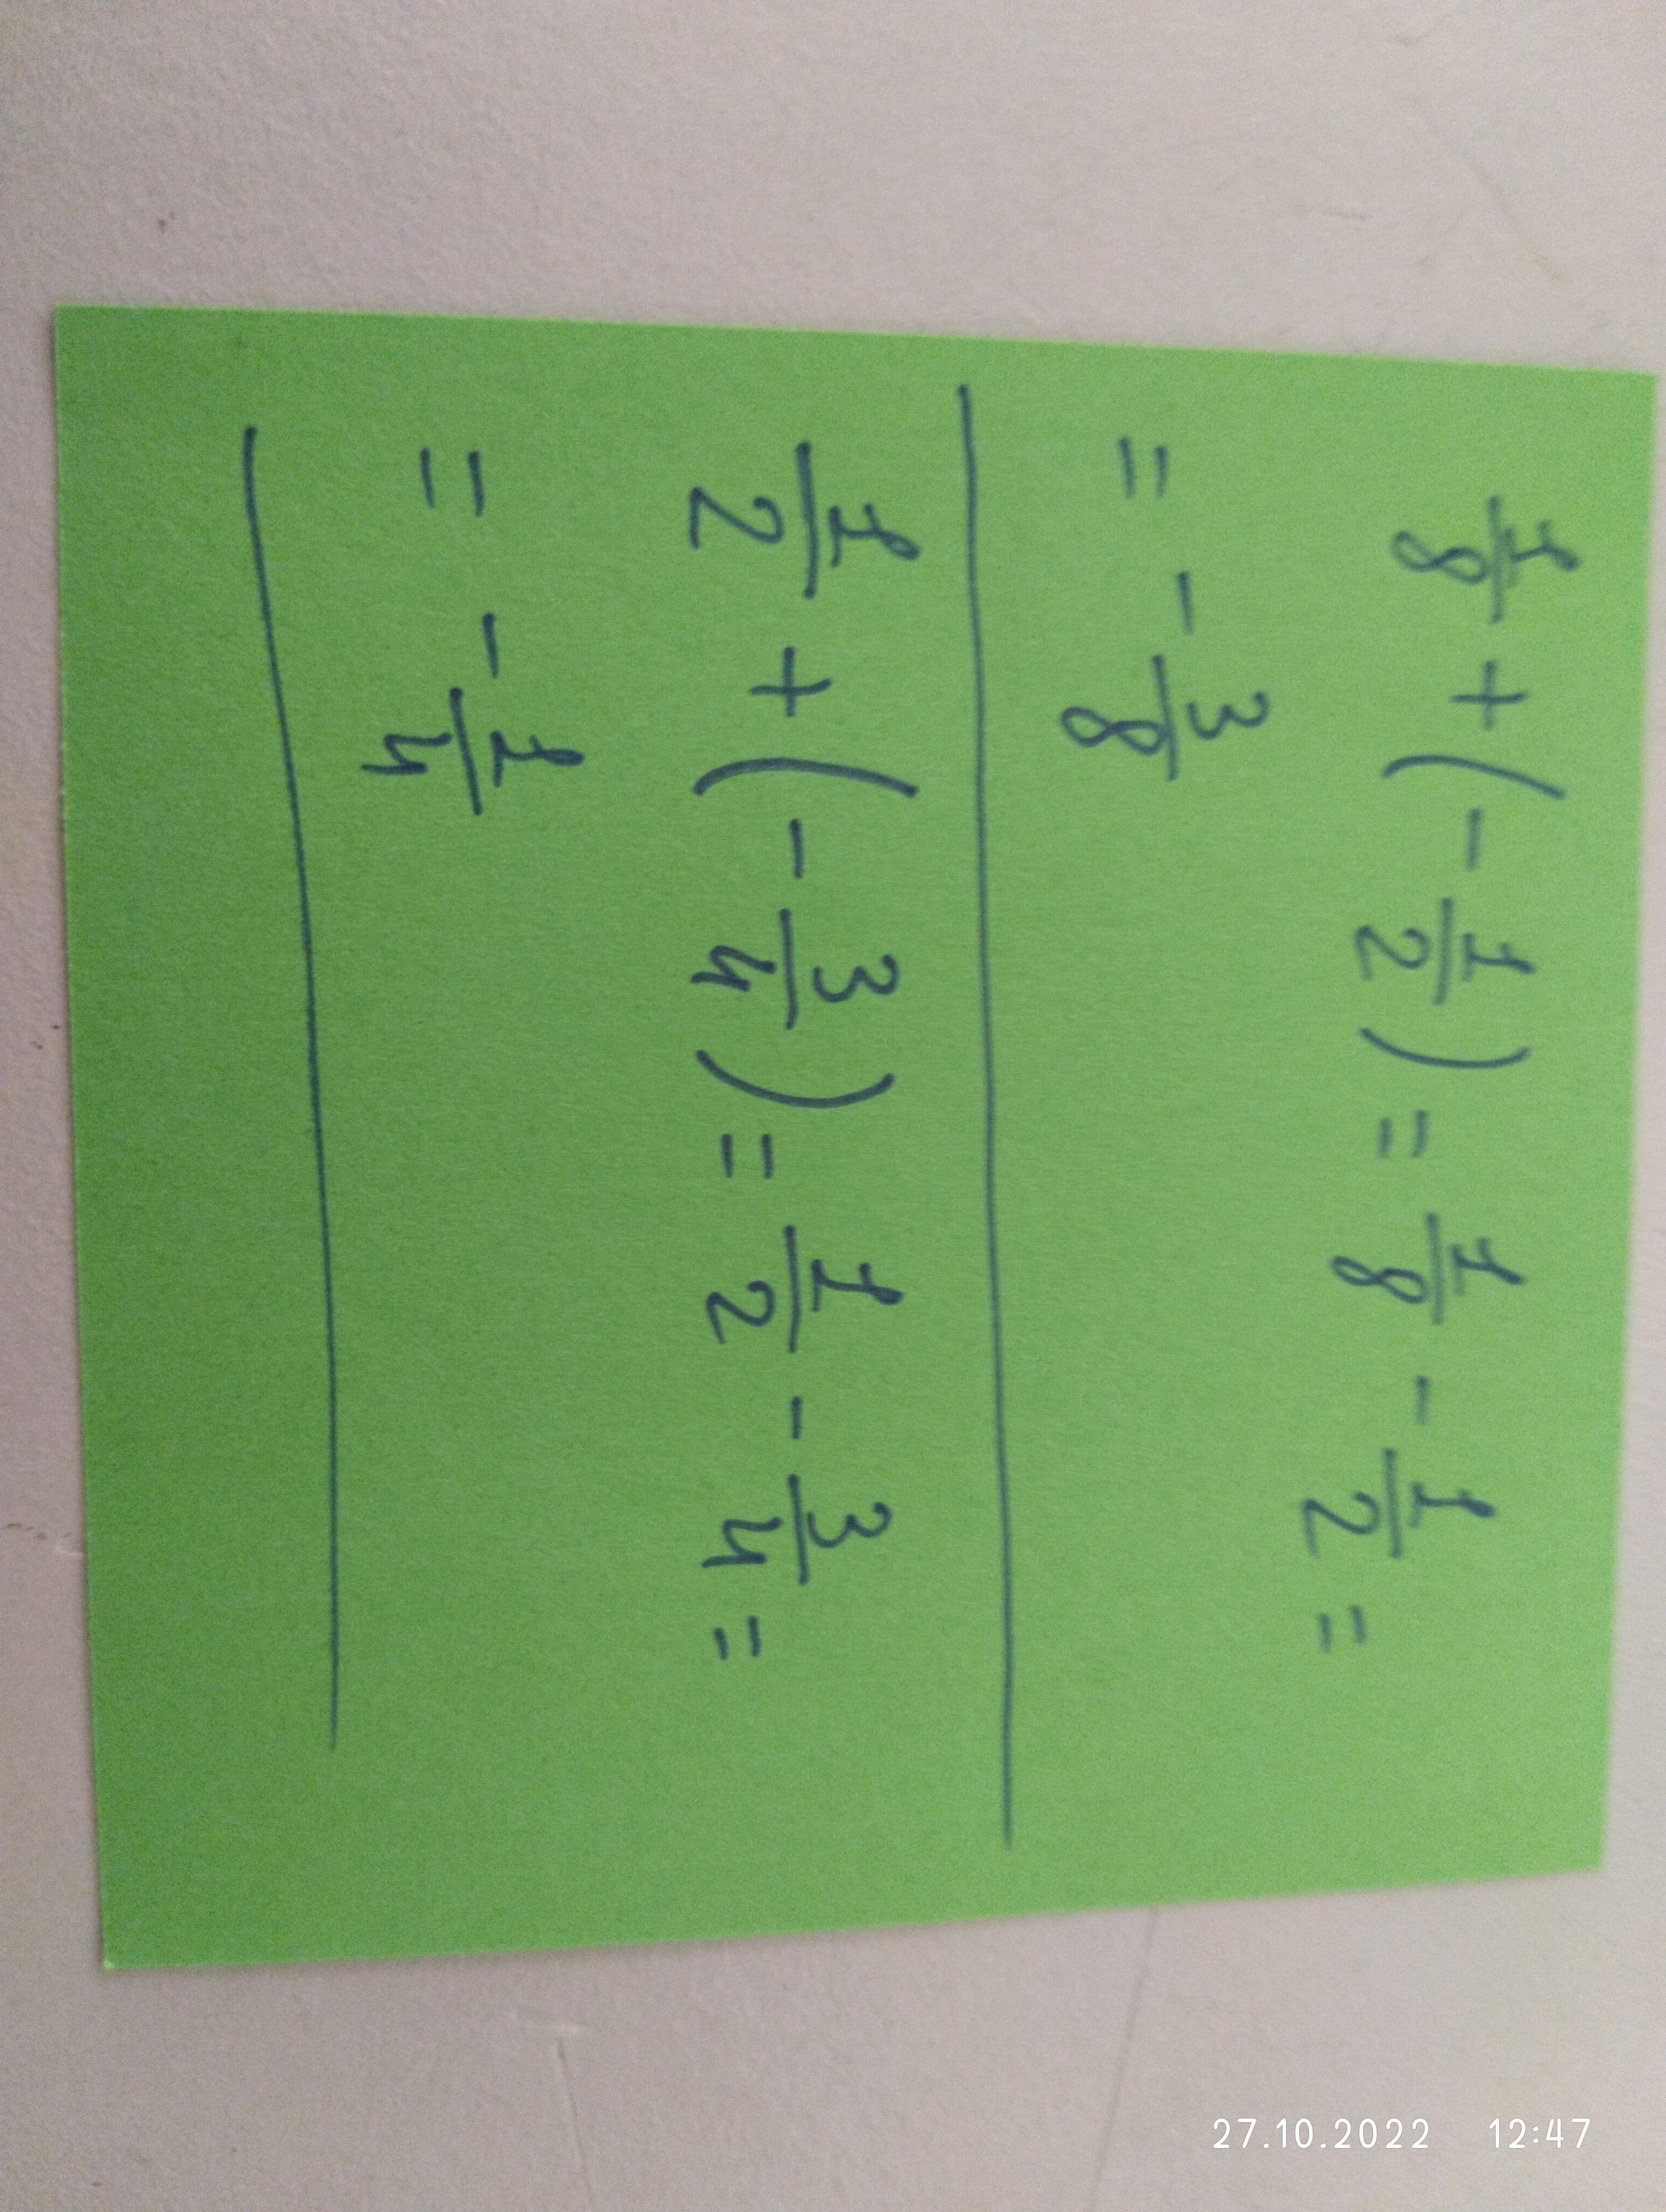 1/8 + (- 1/2) = 1/8 - 1/2 =
= - 3/8
1/2 + (- 3/4) = 1/2 - 3/4 =
= - 1/4
27.10.2022 12:47